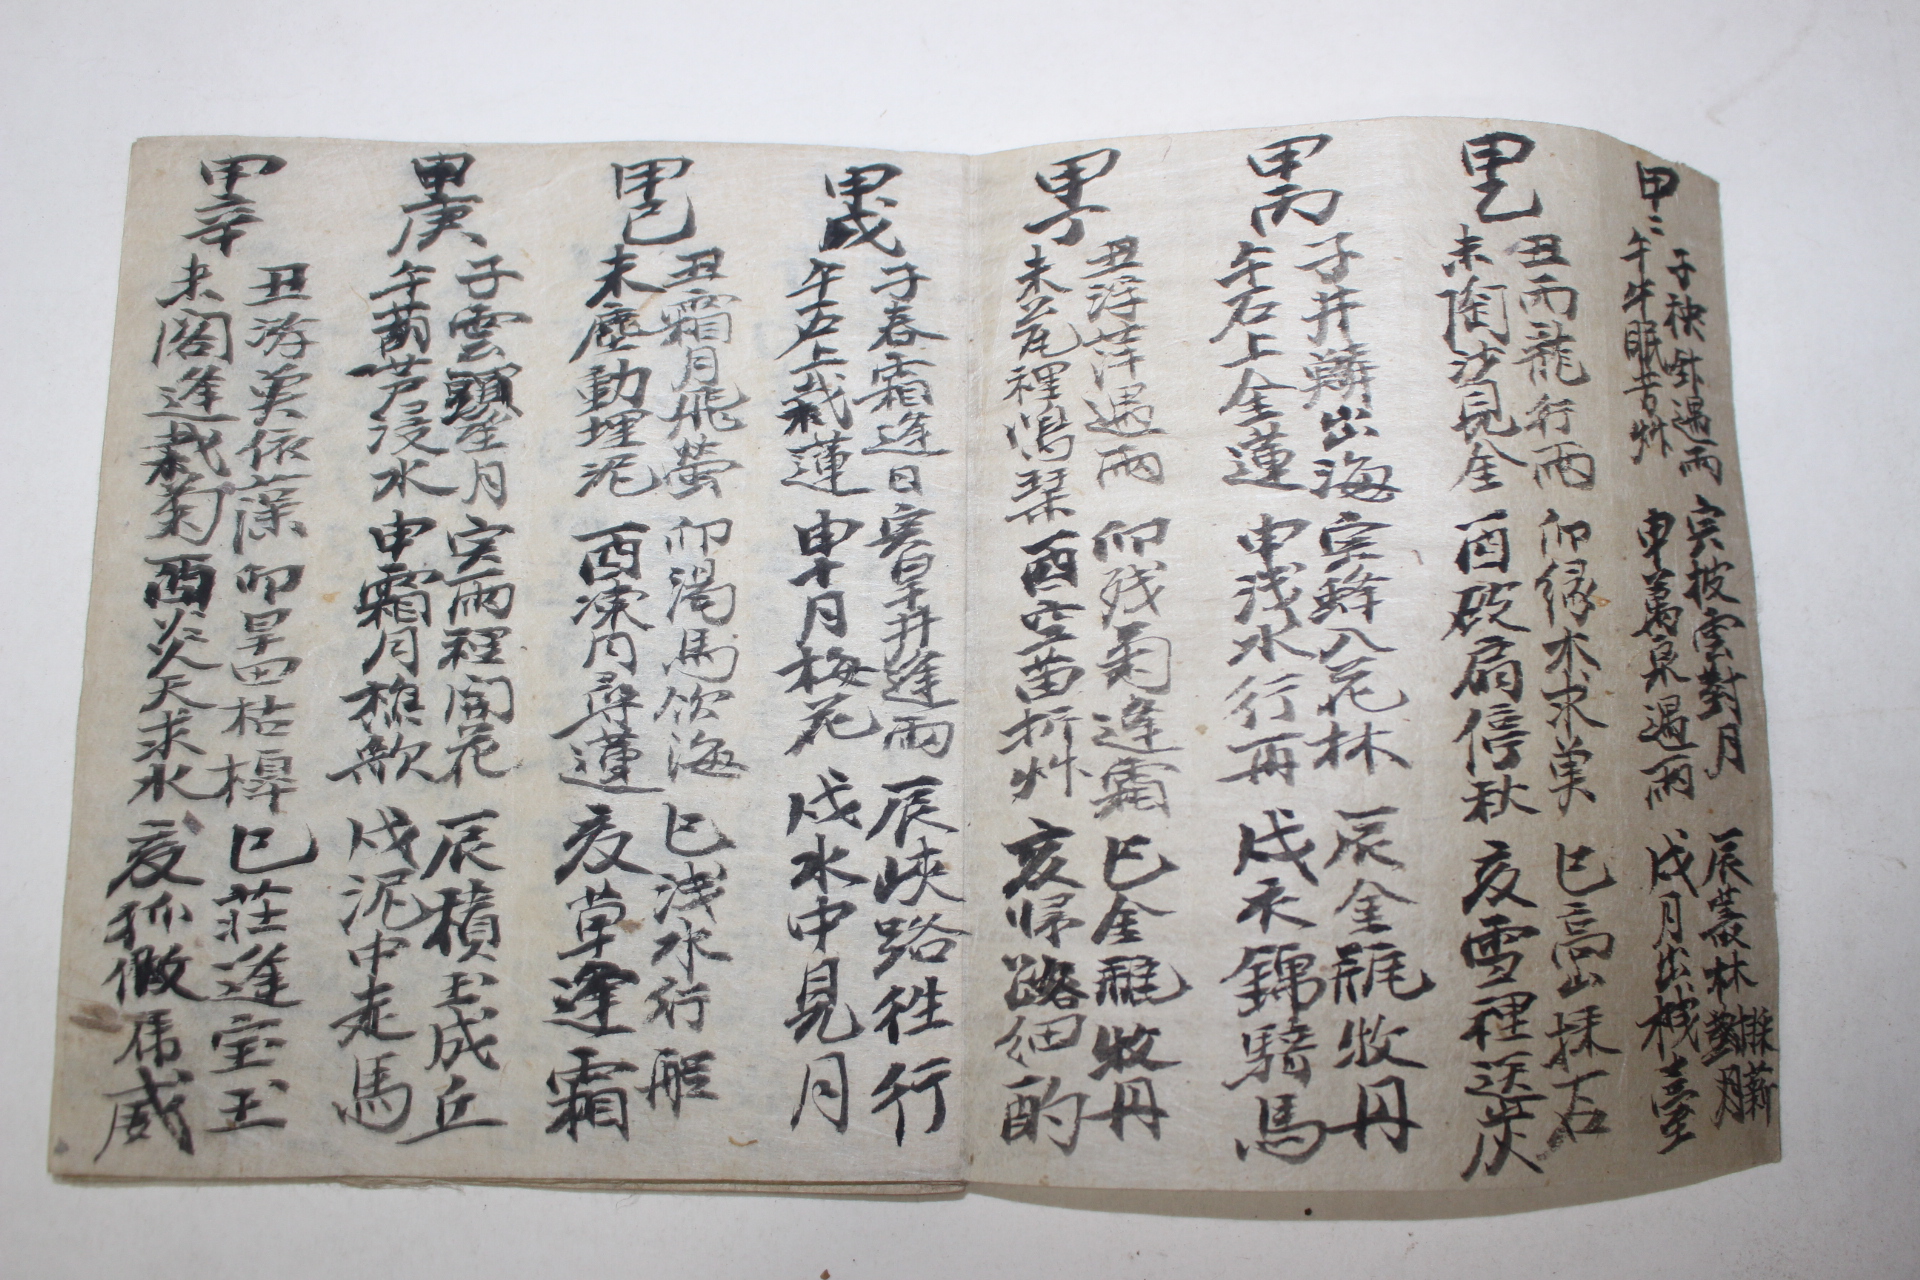 甲甲
子秧針遇雨 寅披雲對月 辰叢林採薪對月
午牛眠芳艸 申萬泉遇雨 戌月出樓臺
甲乙
丑雨龍行雨 卯緣木求魚 巳高山採石
未陶沙見金 酉破扇信秋 亥雪裡送炭
甲丙
子井鱗出海 寅蜂入花林 辰金瓶牧丹
午石上金蓮 申淺水行舟 戌衣錦騎馬
甲丁
丑浮萍遇雨 卯残菊逢霜 巳金瓶牧丹
未花裡鳴琴 酉空苗折艸 亥歸路細酌
甲戊
子春霜逢日 寅旱井逢雨 辰峽路徃行
午石上栽蓮 申十月梅花 戌水中見月
甲己
丑霜月飛螢 卯渴馬飮海 巳淺水行船
未塵動埋泥 酉凍月尋蓮 亥草逢霜
甲庚
子雲頭望月 寅雨裡開花 辰積土成丘
午葫芦浸水 申霜月樵歌 戌泥中走馬
甲辛
丑游魚依藻 卯旱田枯槔 巳莊逢宝玉
未閣逢栽菊 酉炎天求氷 亥狐假虎威